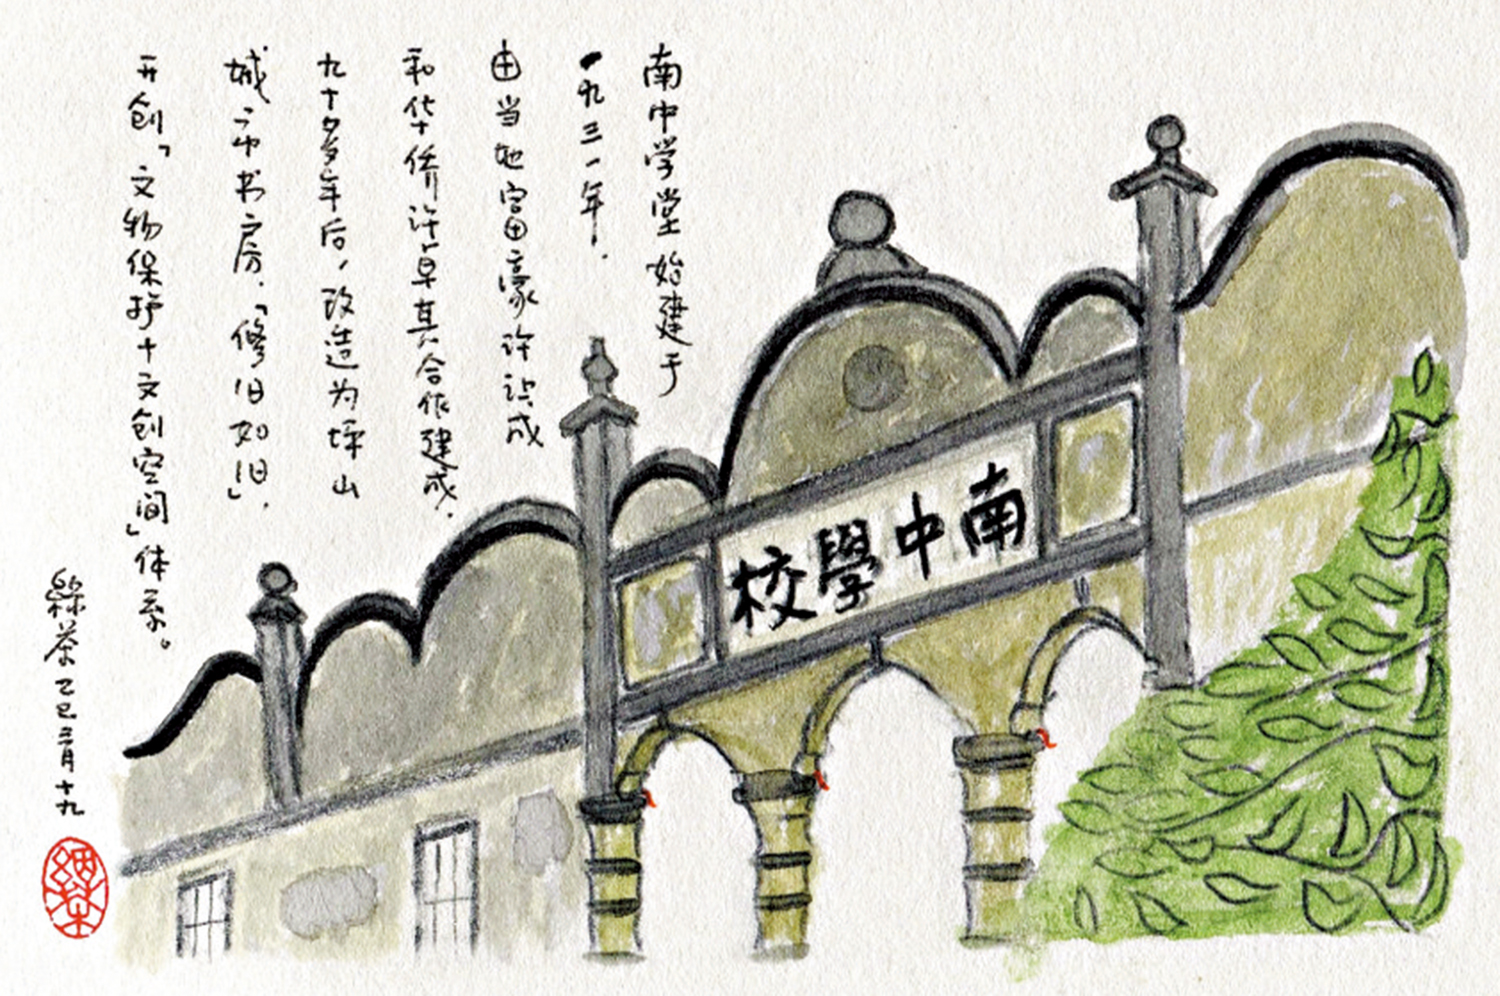 南中学堂始建于
一九三一年.
由当地富豪许让成
和华侨许卓其合作建成.
九十多年后,改造为坪山
城市书房.「修旧如旧」.
开创「文物保护十文创空间」体系。
綠茶乙巳二月十九
南中學校